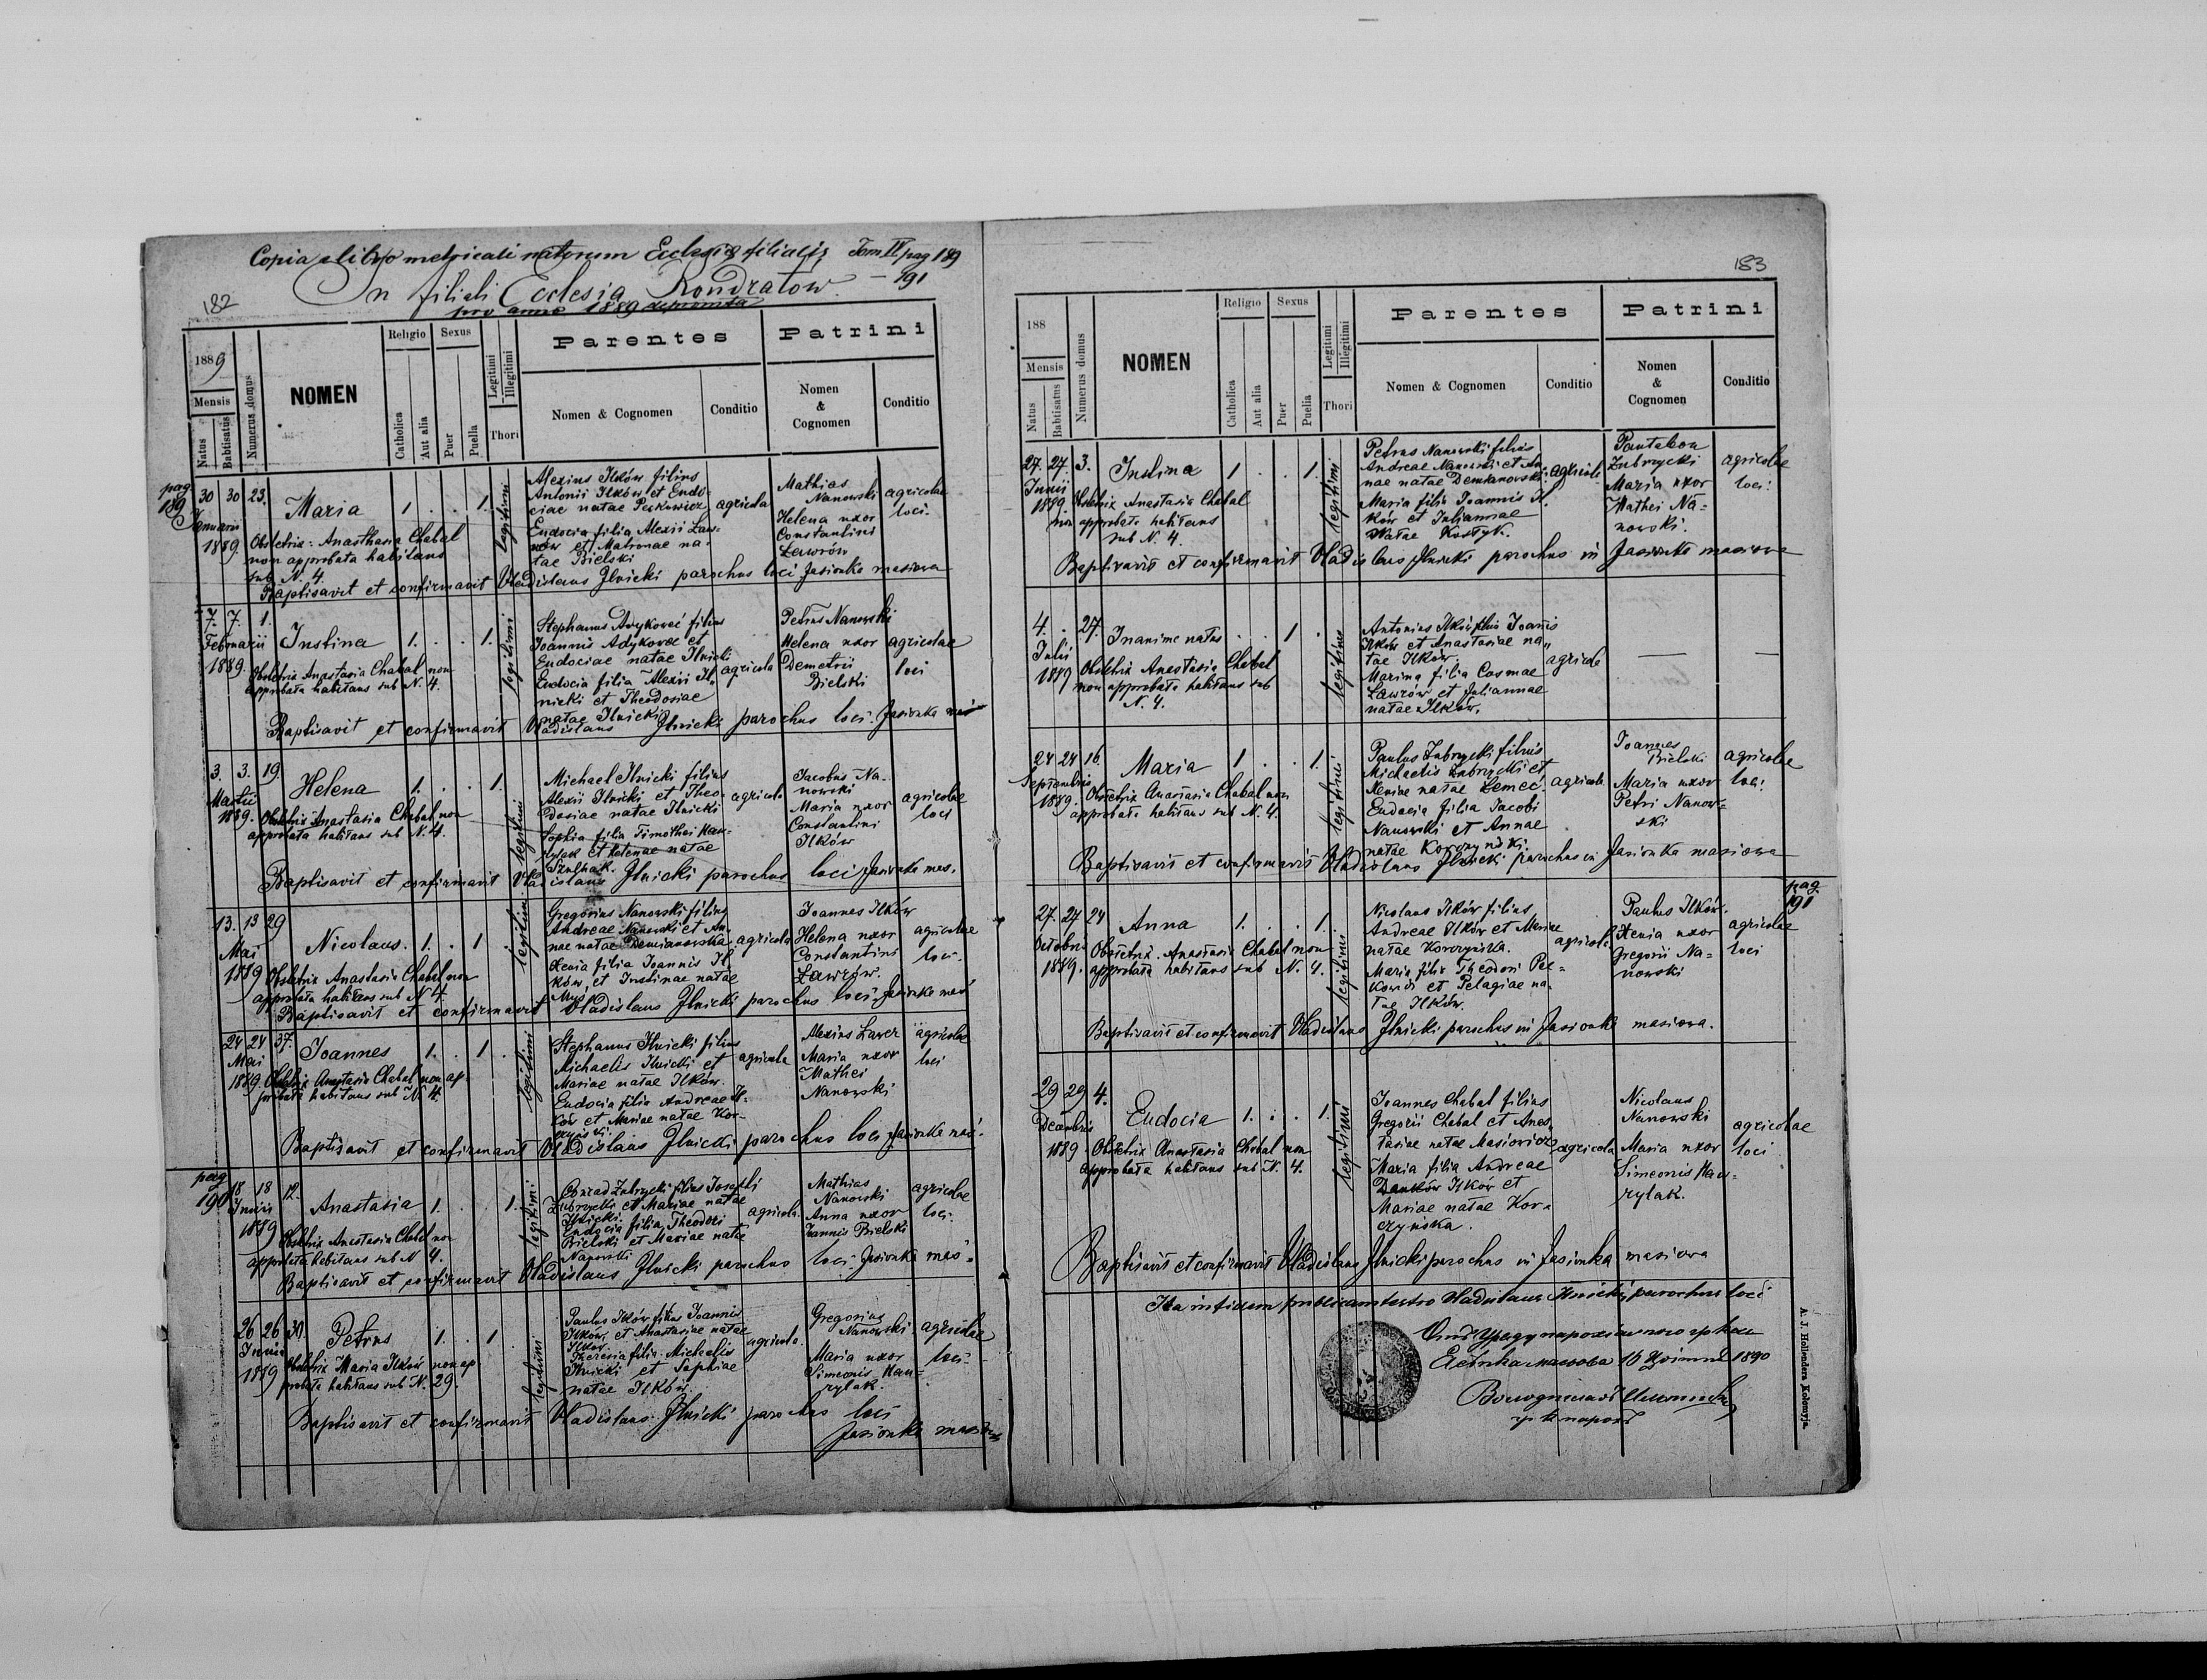 Copia e libro metricali natorum Ecclesiae filialis Tom IV pag 189
— 191
In filiali Ecclesia Kondratow
pro anno 1889 deprompta
182
1889
Mensis
Natus
Babtisatus
Numerus domus
NOMEN
Religio
Catholica
Aut alia
Sexus
Puer
Puella
Legitimi
Illegitimi
Thori
Parentes
Nomen & Cognomen
Conditio
Patrini
Nomen
&
Cognomen
Conditio
pag
189
30 30 23.
Januarii
1889
Maria 1 . . 1.
Obstetrix: Anasthasia Chabal
non approbata habitans
sub N. 4.
legitimi
Alexius Ilków filius
Antonii Ilków et Eudo-
ciae natae
Eudocia filia Alexii Law-
rów et Matronae na-
tae Bielski
agricola
Mathias
Nanowski
Helena uxor
Constantini
Ławrów
agricolae
loci.
Baptisavit et confirmavit Vladislaus Ilnicki parochus loci Jasionka masiowa
7. 7. 1.
Februarii
1889
Justina 1. . . 1.
Obstetrix Anastasia Chabal non
approbata habitans sub N. 4.
legitimi
Stephanus filius
Joannis et
Eudociae natae Ilnicki
Eudocia filia Alexii Il-
nicki et Theodosiae
natae Ilnicki
agricola
Petrus Nanowski
Helena uxor
Demetrii
Bielski
agricolae
loci
Baptisavit et confirmavit Vladislaus Ilnicki parochus loci Jasionka
3. 3. 19.
Martii
1889.
Helena 1. . . 1.
Obstetrix Anastasia Chabal non
approbata habitans sub N. 4.
legitimi
Michael Ilnicki filius
Alexii Ilnicki et Theo-
dosiae natae Ilnicki
Sophia filia Timothei Haw-
rylak et Helenae natae
agricola
Jacobus Na-
nowski
Maria uxor
Constantini
Ilków
agricolae
loci
Baptisavit et confirmavit Vladislaus Ilnicki parochus loci Jasionka mas.
13. 13 29
Mai
1889
Nicolaus. 1. . 1 .
Obstetrix Anastasia Chabal non
approbata habitans sub N 4.
legitimi
Gregorius Nanowski filius
Andreae Nanowski et An-
nae natae Demianowska.
Xenia filia Joannis Il-
ków et Justinae natae
agricola
Joannes Ilków
Helena uxor
Constantini
Ławrów.
agricolae
loci.
Baptisavit et confirmavit Vladislaus Ilnicki parochus loci Jasionka mas
24 24 37.
Mai
1889.
Joannes 1. . 1 .
Obstetrix Anastasia Chabal non ap-
probata habitans sub N. 4.
legitimi
Stephanus Ilnicki filius
Michaelis Ilnicki et
Mariae natae Ilków.
Eudocia filia Andreae Il-
ków et Mariae natae Kor-
czyński.
agricola
Alexius Lawer
Maria uxor
Mathei
Nanowski
agricolae
loci
Baptisavit et confirmavit Vladislaus Ilnicki parochus loci Jasionka mas.
pag
190
18 18 12.
Junii
1889
Anastasia 1. . . 1.
Obstetrix Anastasia Chabal non
approbata habitans sub N 4.
legitimi
Conrad Zubrzycki filius Josephi
Zubrzycki et Mariae natae
Ilnicki.
Eudocia filia Theodori
Bielski et Mariae natae
Nanowski
agricola.
Mathias
Nanowski
Anna uxor
Joannis Bielski
agricolae
loci.
Baptisavit et confirmavit Vladislaus Ilnicki parochus loci Jasionka mas-
26 26 30.
Junii
1889
Petrus 1. . 1
Obstetrix Maria Ilków non ap-
probata habitans sub N. 29.
legitimi
Paulus Ilków filius Joannis
Ilków et Anastasiae natae
Ilków.
Theresia filia Michaelis
Ilnicki et Sophiae
natae Ilków.
agricola.
Gregorius
Nanowski
Maria uxor
Simeonis Haw-
rylak.
agricolae
loci.
Baptisavit et confirmavit Vladislaus Ilnicki parochus loci
Jasionka
183
188
Mensis
Natus
Babtisatus
Numerus domus
NOMEN
Religio
Catholica
Aut alia
Sexus
Puer
Puella
Legitimi
Illegitimi
Thori
Parentes
Nomen & Cognomen
Conditio
Patrini
Nomen
&
Cognomen
Conditio
27. 27. 3.
Junii
1889
Justina 1 . . 1.
Obstetrix Anastasia Chabal
non approbata habitans
sub N. 4.
legitimi
Petrus Nanowski filius
Andreae Nanowski et An-
nae natae Demianowski.
Maria filia Joannis Il-
ków et Juliannae
natae Kostyk.
agricola
Pantaleon
Zubrzycki
Maria uxor
Mathei Na-
nowski.
agricolae
loci.
Baptisavit et confirmavit Vladislaus Ilnicki parochus in Jasionka masiowa
4. . 27.
Julii
1889
Inanime natus . . 1 .
Obstetrix Anastasia Chabal
non approbata habitans sub
N. 4.
legitimus
Antonius Ilków filius Joannis
Ilków et Anastasiae na-
tae Ilków.
Marina filia Cosmae
Ławrów et Juliannae
natae Ilków.
agricola
— —
24 24 16.
Septembris
1889.
Maria 1 . . 1.
Obstetrix Anastasia Chabal non
approbata habitans sub N. 4.
legitimi
Paulus Zubrzycki filius
Michaelis Zubrzycki et
Xeniae natae Łemeć.
Eudocia filia Jacobi
Nanowski et Annae
natae Korczyński.
agricola
Joannes
Bielski
Maria uxor
Petri Nanow-
ski
agricolae
loci
Baptisavit et confirmavit Vladislaus Ilnicki parochus in Jasionka masiowa
pag.
191
27. 27 24
Octobris
1889.
Anna 1. . . 1.
Obstetrix. Anastasia Chabal non
approbata habitans sub N. 4.
legitimi
Nicolaus Ilków filius
Andreae Ilków et Mariae
natae Korczyńska.
Maria filia Theodori
et Pelagiae na-
tae Ilków.
agricola
Paulus Ilków.
Xenia uxor
Gregorii Na-
nowski
agricolae
loci
Baptisavit et confirmavit Vladislaus Ilnicki parochus in Jasionka masiowa.
29 29 4.
Decembris
1889
Eudocia 1. . . 1.
Obstetrix Anastasia Chabal non
approbata habitans sub N. 4.
legitimi
Joannes Chabal filius
Gregorii Chabal et Anas-
tasiae natae Masiovicz
Maria filia Andreae
Ilków et
Mariae natae Kor-
czyńska.
agricola
Nicolaus
Nanowski
Maria uxor
Simeonis Haw-
rylak.
agricolae
loci
Baptisavit et confirmavit Vladislaus Ilnicki parochus in Jasionka masiowa
Ita in fidem publicam testor Vladislaus Ilnicki parochus loci
1890
A. J. Hollendera Kołomyja